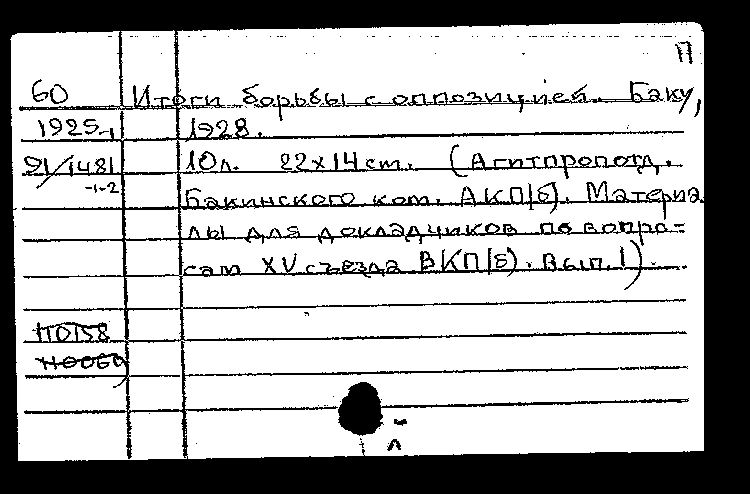 П
60 Итоги борьбы с оппозицией. Баку,
1925 1928.
91/1481 10л. 22х14cm. (Агитпропотд.
-1-2 Бакинского ком. АКП/б). Материа
лы для докладчиков по вопро=
сам XV съезда ВКП/б). Вып. 1).